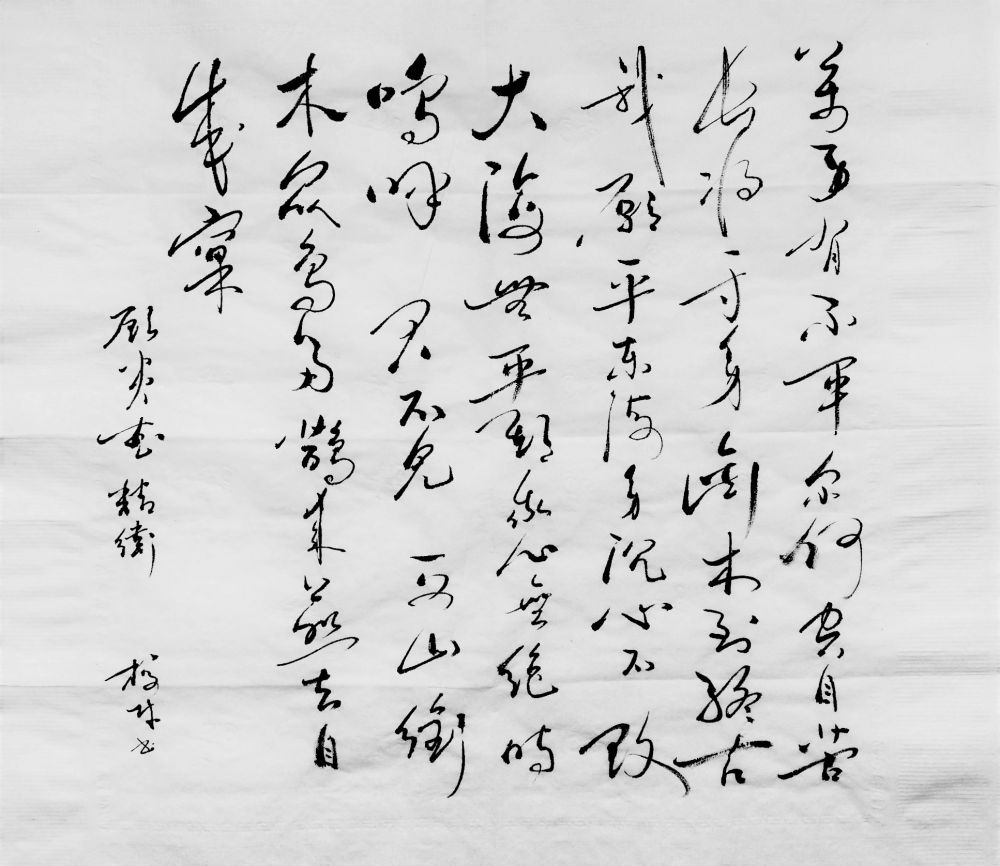 萬事有不平尔何空自苦
長將一寸身銜木到終古
我願平東海身沉心不改
大海無平期我心無絕時
嗚呼君不見西山銜
木眾鳥多鵲來燕去自
成窠
顧炎武精衛